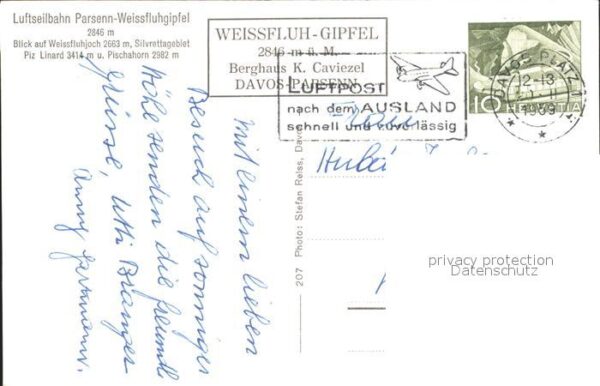 Luftseilbahn Parsenn-Weissfluhgipfel
2846 m
Blick auf Weissfluhjoch 2663 m, Silvrettagebiet
Piz Linard 3414 m u. Pischahorn 2982 m
WEISSFLUH-GIPFEL
2846 m ü. M.
Berghaus K. Caviezel
DAVOS-PARSENN
LUFTPOST
nach dem AUSLAND
schnell und zuverlässig
DAVOS PLATZ
12-13
II
1959
10 HELVETIA
Frau
Mit einem lieben
Besuch auf sonniger
Höhe senden die freundl
Grüsse, Utti Branger
Anny
207 Photo: Stefan Reiss, Davos
privacy protection
Datenschutz